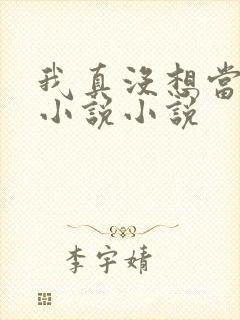 我真沒想當
小說小說
李宇婧